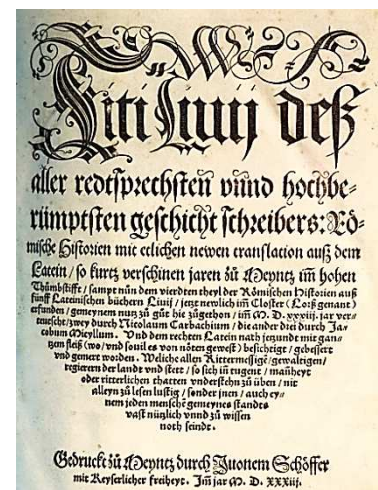 Titi Liuij deß
aller redtsprechsten vnnd hochbe-
rümptsten geschicht schreibers: Rö-
mische Historien mit etlichen newen translation auß dem
Latein / so kurtz verschinen jaren zů Meyntz im̃ hohen
Thůmbstifft / sampt nůn dem vierdten theyl der Römischen Historien auß
fünff Lateinischen büchern Liuij / jetz newlich im̃ Closter (Lorß genant)
erfunden / gemeynem nutz zů gůt hie zůgethon / im̃ M. D. xxxiij. jar ver-
teutscht / zwey durch Nicolaum Carbachium / die ander drei durch Ja-
cobum Micyllum. Vnd dem rechten Latein nach jetzundt mit gan-
tzem fleiß (wo / vnd souil es von nöten gewest) besichtigt / gebessert
vnd gemert worden. Welche allen Rittermessigẽ / gewaltigen /
regierern der landt vnd stett / so sich in tugent / mañheyt
oder ritterlichen thatten vnderstehn zů üben / nit
alleyn zů lesen lustig / sonder jnen / auch ey-
nem jeden menschẽ gemeynes standts
vast nützlich vnnd zů wissen
noth seindt.
Gedruckt zů Meyntz durch Juonem Schöffer
mit Keyserlicher freiheyt. Jm̃ jar M. D. XXXiij.